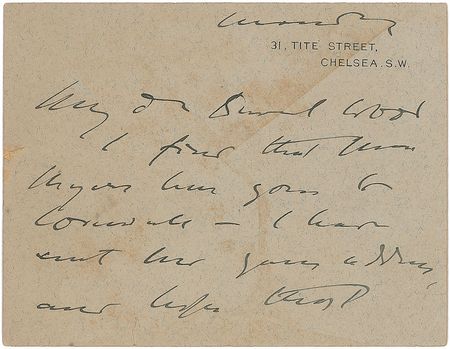 Monday
31, TITE STREET,
CHELSEA. S.W.
My dr Wood
I find that
has gone to
Cornwall – I have
sent her your address,
and hope that